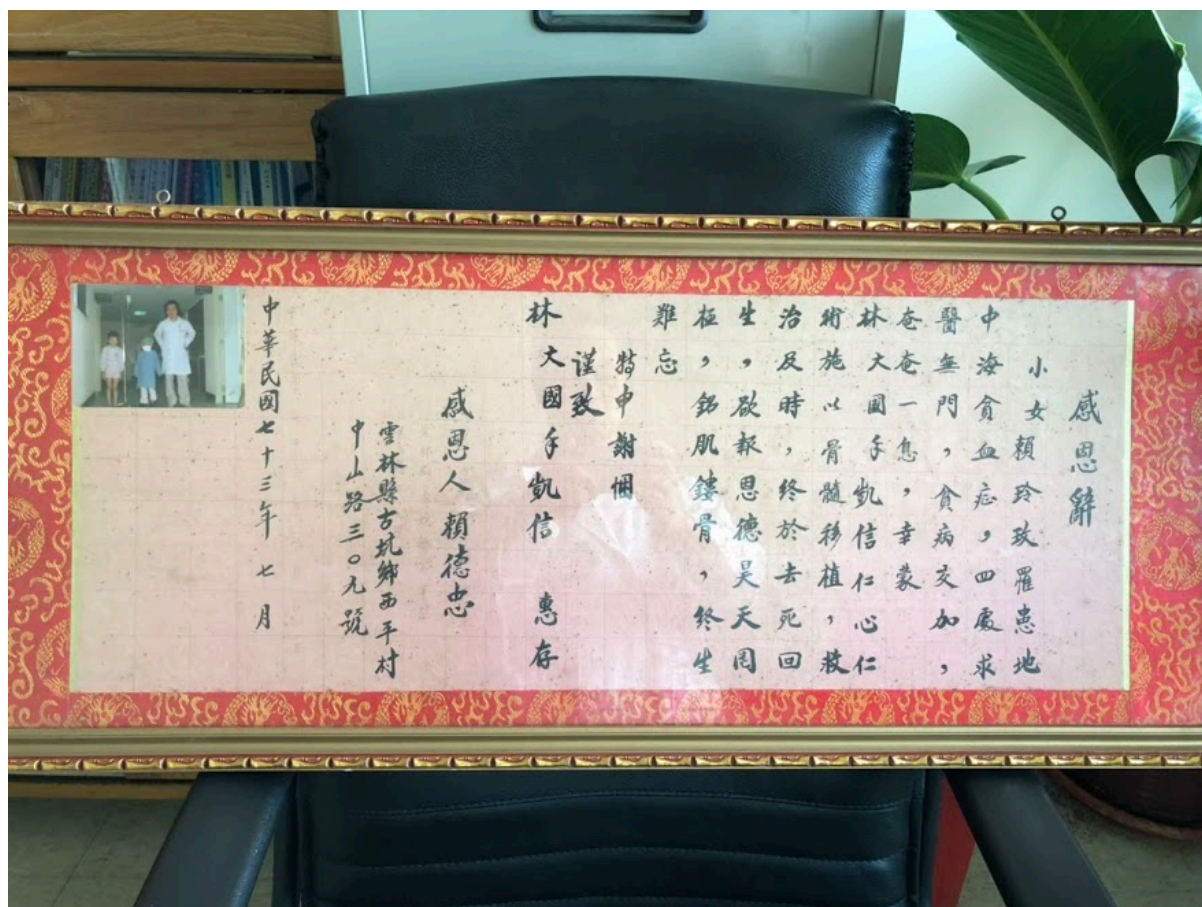 感恩辭
小女賴玲玫罹患地
中海貧血症，四處求
醫無門，貧病交加，
奄奄一息，幸蒙
林大國手凱信仁心仁
術施以骨髓移植，救
治及時，終於去死回
生，欲報恩德昊天罔
極，銘肌鏤骨，終生
難忘
特申謝悃
謹致
林大國手凱信 惠存
感恩人賴德忠
雲林縣古坑鄉西平村
中山路三０九號
中華民國七十三年七月